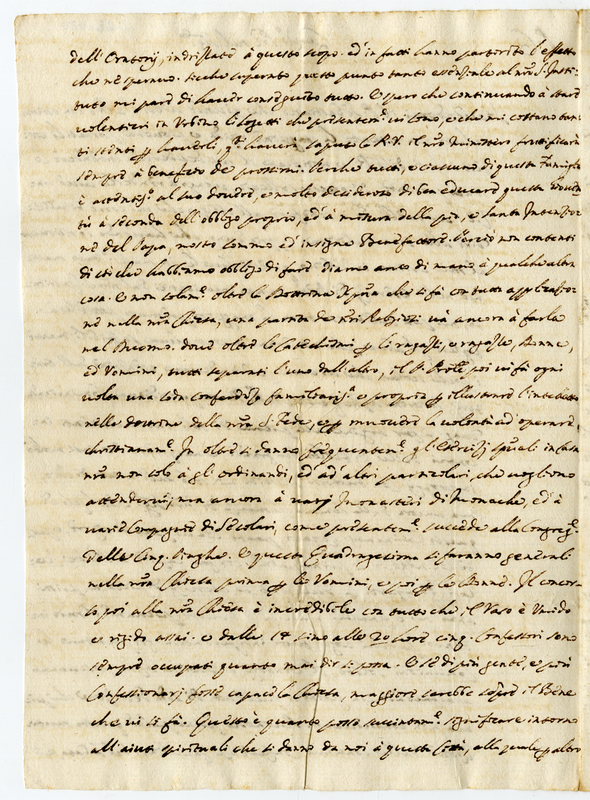 dell'Oratorij, indrizzate à questo scopo. ed in fatti hanno partorito l'effetto
che ne speravo. siche superato questo punto tanto essenziale al nrõ S. Insti-
tuto mi pare di haver conseguito tutto. E spero che continuando à stare
volentieri in Urbino li sogetti che presentem.te vi sono, e che mi costano tan-
ti stenti p haverli, haverà saputo la R.V. il nrõ ministero fruttificarà
sempre à beneficio de prossimi. Perche tutti, e ciascuno di questa Famiglia
è attentiss.o al suo dovere, e molto desideroso di ben educare questa Gioven-
tù à seconda dell'obbligo proprio, ed à misura della pia, e santa Intenzio-
ne del Papa, nostro sommo ed insigne Benefattore. Perciò non contenti
di ciò che habbiamo obbligo di fare diamo anco di mano à qualche altra
cosa. E non solam.te oltre la Dottrina Xpña che si fà con tutta applicazio-
ne nella nrã Chiesa, una parte de nrĩ Religiosi và ancora à farla
nel Duomo. dove oltre le Catechismi p li ragazzi, e ragazze, Donne,
ed Uomini, tutti separati l'uno dall'altro, il P. poi vi fà ogni
volta una con familiariss.a e propria p illustrare l'intelletto
nelle dottrine della nrã S. Fede, e p muovere la volontà ad operare
christianam.te In oltre si danno frequentem.te gl'Esercizij sp̃uali in casa
nrã non solo à gli ordinandi, ed ad altri particolari, che vogliono
attendervi, ma ancora à varij Monasteri di Monache, ed à
varie Compagnie di Secolari, come presentem.te succede alla Congreg.e
delle Cinq. Piaghe. E questa Quadragesima si faranno generali
nella nrã Chiesa prima p le Uomini, e poi p le Donne. Il concor-
so poi alla nrã Chiesa è incredibile con tutto che il Vaso è Umido
e rigido assai. e dalle 14 sino alle 20 hore cinq. Confessori sono
sempre occupati quanto mai dir si possa. E se di più gente, e più
Confessionarj fosse capace la Chiesa, maggiore sarebbe sopra il Bene
che vi si fà. Questo è quanto posso succintam.te significare intorno
all'aiuti spirituali che si danno da noi à questa Città, alla quale p altro